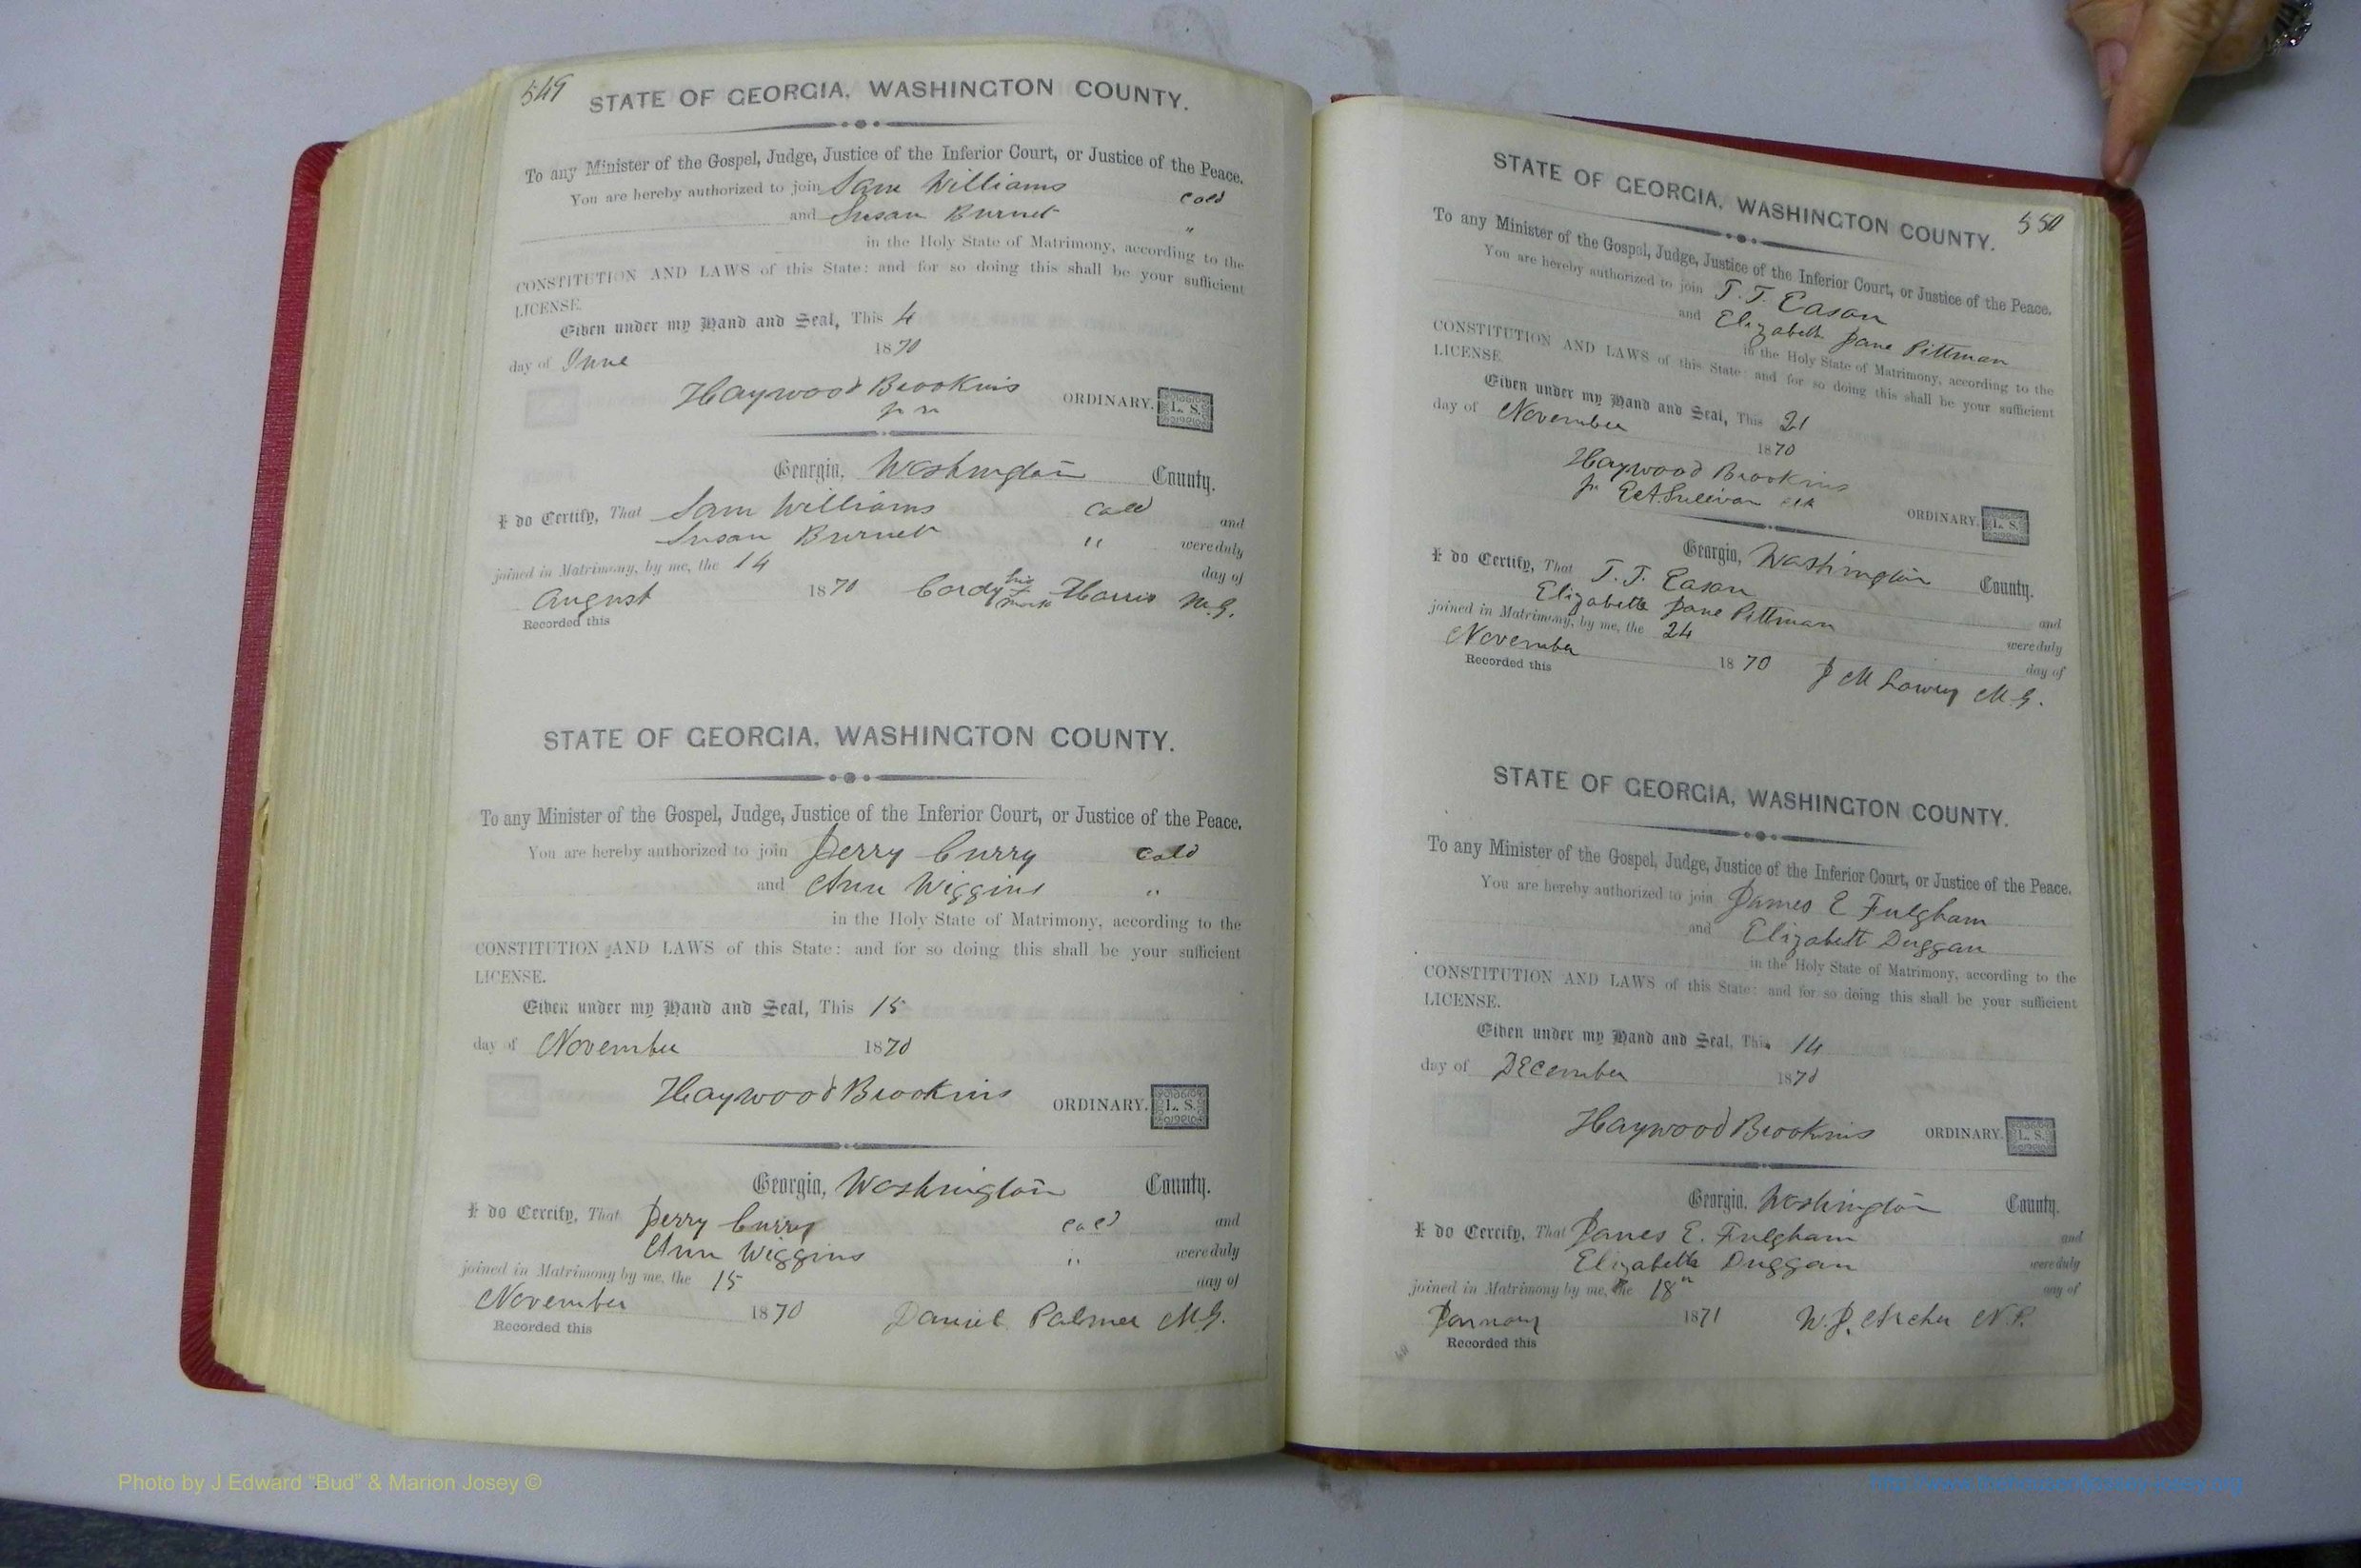 549
STATE OF GEORGIA, WASHINGTON COUNTY.
To any Minister of the Gospel, Judge, Justice of the Inferior Court, or Justice of the Peace.
You are hereby authorized to join Sam Williams Cold
and Susan Burnet "
in the Holy State of Matrimony, according to the
CONSTITUTION AND LAWS of this State: and for so doing this shall be your sufficient
LICENSE.
Given under my Hand and Seal, This 4
day of June 1870
Haywood Brookins
ORDINARY. L. S.
Georgia, Washington County.
I do Certify, That Sam Williams Cold and
Susan Burnet " were duly
joined in Matrimony, by me, the 14 day of
August 1870 Cordy his x mark Harris M.G.
Recorded this
STATE OF GEORGIA, WASHINGTON COUNTY.
To any Minister of the Gospel, Judge, Justice of the Inferior Court, or Justice of the Peace.
You are hereby authorized to join Perry Curry Cold
and Ann Wiggins "
in the Holy State of Matrimony, according to the
CONSTITUTION AND LAWS of this State: and for so doing this shall be your sufficient
LICENSE.
Given under my Hand and Seal, This 15
day of November 1870
Haywood Brookins ORDINARY. L. S.
Georgia, Washington County.
I do Certify, That Perry Curry Cold and
Ann Wiggins " were duly
joined in Matrimony by me, the 15 day of
November 1870 Daniel Palmer M.G.
Recorded this
550
STATE OF GEORGIA, WASHINGTON COUNTY.
To any Minister of the Gospel, Judge, Justice of the Inferior Court, or Justice of the Peace.
You are hereby authorized to join T. T. Eason
and Elizabeth Jane Pittman
in the Holy State of Matrimony, according to the
CONSTITUTION AND LAWS of this State: and for so doing this shall be your sufficient
LICENSE.
Given under my Hand and Seal, This 21
day of November 1870
Haywood Brookins
pr E A. Sullivan clk ORDINARY. L. S.
Georgia, Washington County.
I do Certify, That T. T. Eason and
Elizabeth Jane Pittman were duly
joined in Matrimony, by me, the 24 day of
November 1870 J M Lowry M.G.
Recorded this
STATE OF GEORGIA, WASHINGTON COUNTY.
To any Minister of the Gospel, Judge, Justice of the Inferior Court, or Justice of the Peace.
You are hereby authorized to join James E Fulgham
and Elizabeth Duggan
in the Holy State of Matrimony, according to the
CONSTITUTION AND LAWS of this State: and for so doing this shall be your sufficient
LICENSE.
Given under my Hand and Seal, This 14
day of December 1870
Haywood Brookins ORDINARY. L. S.
Georgia, Washington County.
I do Certify, That James E. Fulgham and
Elizabeth Duggan were duly
joined in Matrimony by me, the 18th day of
January 1871 W. J. Archer N.P.
Recorded this
Photo by J Edward "Bud" & Marion Josey ©